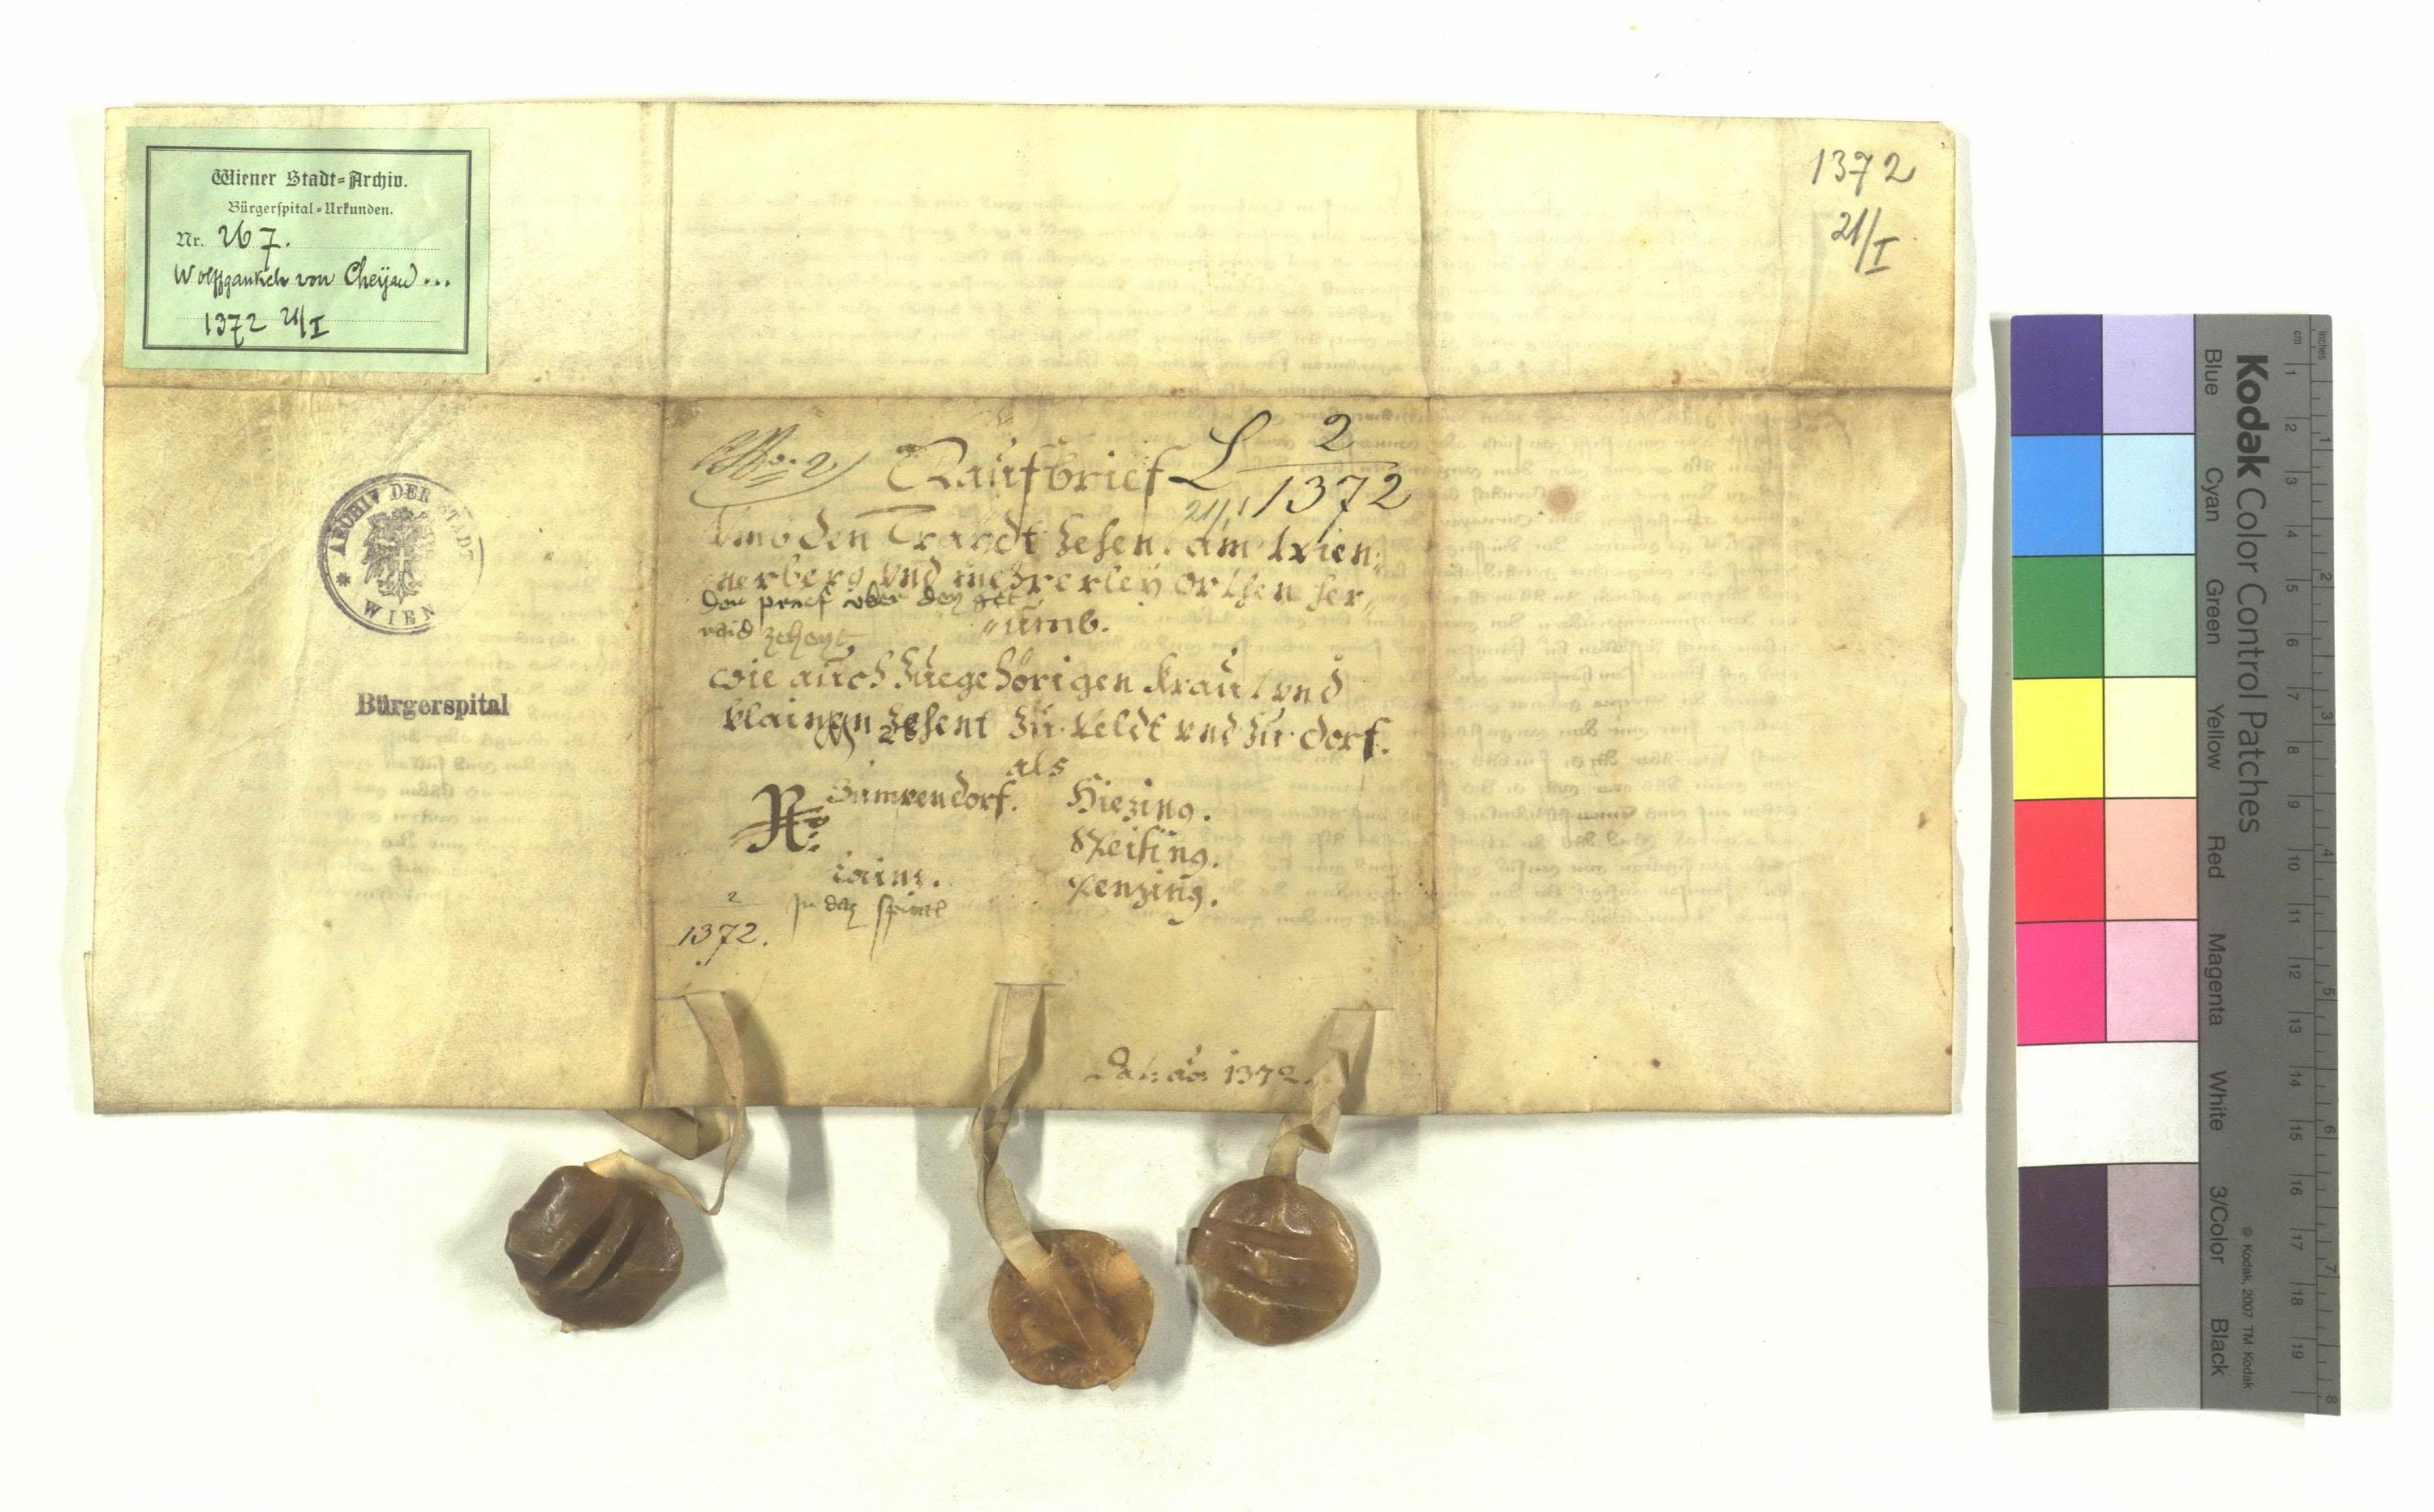 Wiener Stadt=Archiv.
Bürgerspital=Urkunden.
Nr. 267.
Wolffgankch von Cheyau...
1372 21/I
1372
21/I
ARCHIV DER STADT
* WIEN
Bürgerspital
No: 2
Kaufbrief
L 2
1372
21/1
Vmb den Traydt Zehent am Wien„
nerberg vnd mehrerley orthen her„
„umb.
den prief vber den get
raid zehent
wie auch zuegehörigen kraut vnd
klainen Zehent zu veldt vnd zu dorf.
als
Gumpendorf. Hiezing.
N:
Speising.
Lainz. Penzing.
In daz spital
2
1372.
Dat: ao: 1372.
Kodak Color Control Patches
Blue Cyan Green Yellow Red Magenta White 3/Color Black
© Kodak, 2007 TM: Kodak
inches
cm
1 2 3 4 5 6 7 8 9 10 11 12 13 14 15 16 17 18 19
1 2 3 4 5 6 7 8